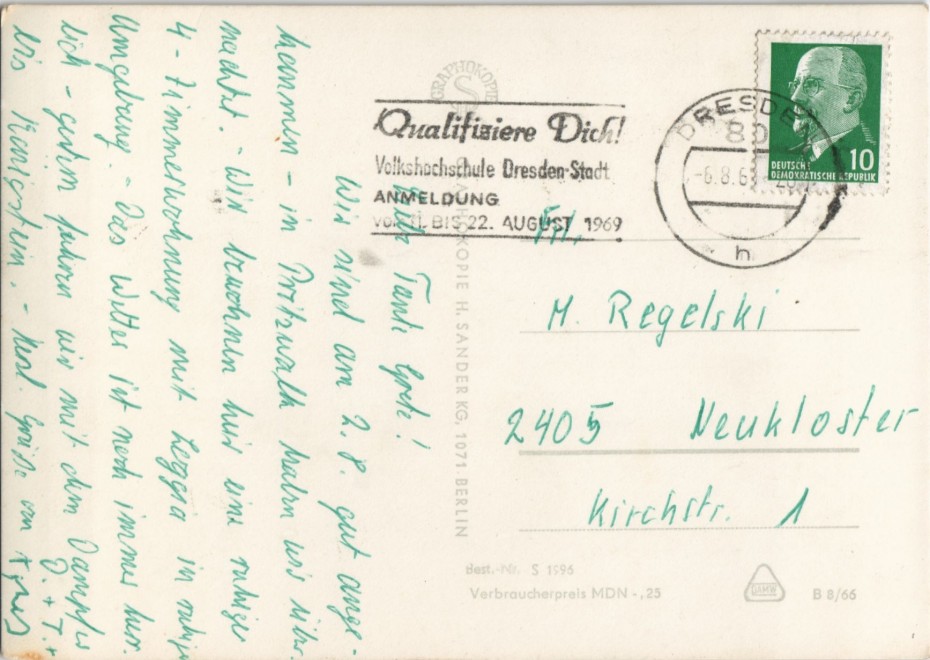 Qualifiziere Dich!
Volkshochschule Dresden-Stadt
ANMELDUNG
vom 11. BIS 22. AUGUST 1969
DRESDEN
80
-6.8.6
h
10
DEUTSCHE
DEMOKRATISCHE REPUBLIK
GRAPHOKOPIE
Frl.
M. Regelski
2405 Neukloster
Kirchstr. 1
Tante Grete!
Wir sind am 2.8. gut ange-
kommen - in Pritzwalk haben wir über-
nachtet. - Wir bewohnen hier eine ruhige
4-Zimmerwohnung mit Loggia in
Umgebung. - Das Wetter ist noch immer herr-
lich - gestern fuhren wir mit dem Dampfer
bis Königstein. - Herzl. Grüße von
GRAPHOKOPIE H. SANDER KG, 1071 BERLIN
Best.-Nr. S 1996
Verbraucherpreis MDN -,25
B 8/66